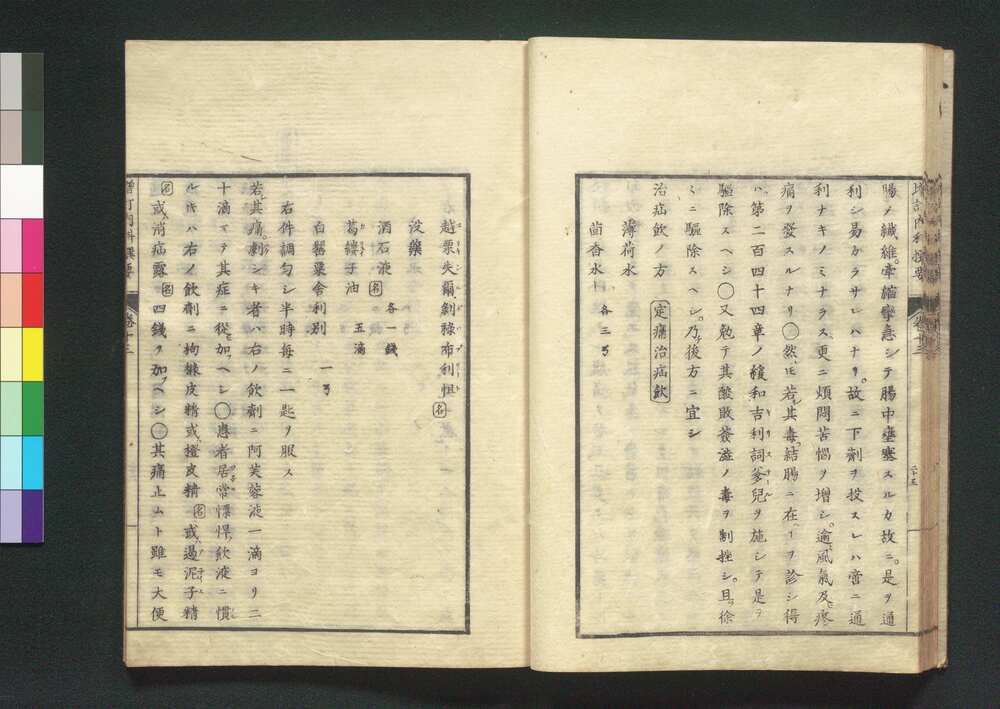 腸ノ纎維。牽縮攣急シテ腸中壅塞スルカ故ニ。是ヲ通
利シ易カラサレハナリ。故ニ下劑ヲ投スレハ啻ニ通
利ナキノミナラス。更ニ煩悶苦惱ヲ増シ。逾風氣及ヒ疼
痛ヲ發スルナリ○然レ𪜈若シ其毒。結腸ニ在ルヿヲ診シ得
ハ。第二百四十四章ノ緩和吉利詞爹兒ヲ施シテ是ヲ
驅除スヘシ○又勉テ其酸敗蒸溢ノ毒ヲ制挫シ。且ツ徐
〻ニ驅除スヘシ。乃チ後方ニ宜シ
治疝飲ノ方 定痛治疝飲
薄荷水
茴香水 各三弓
越栗失爾剝祿布利怛 名
沒藥
酒石液 名 各一錢
葛縷子油 五滴
白罌粟舍利別 一弓
右件調勻シ半時毎ニ一匙ヲ服ス
若シ其痛劇シキ者ハ右ノ飲劑ニ阿芙蓉液一滴ヨリ二
十滴マテ其症ニ從ヒ加フヘシ○患者居常慓悍ノ飲液ニ慣
ルヽ𪜈ハ右ノ飲劑ニ拘櫞皮精或ハ橙皮精 名 或ハ過泥子精
名 或ハ消疝露 名 四錢ヲ加フヘシ○其痛止ムト雖モ大便
増訂内科撰要 卷十三
二十五